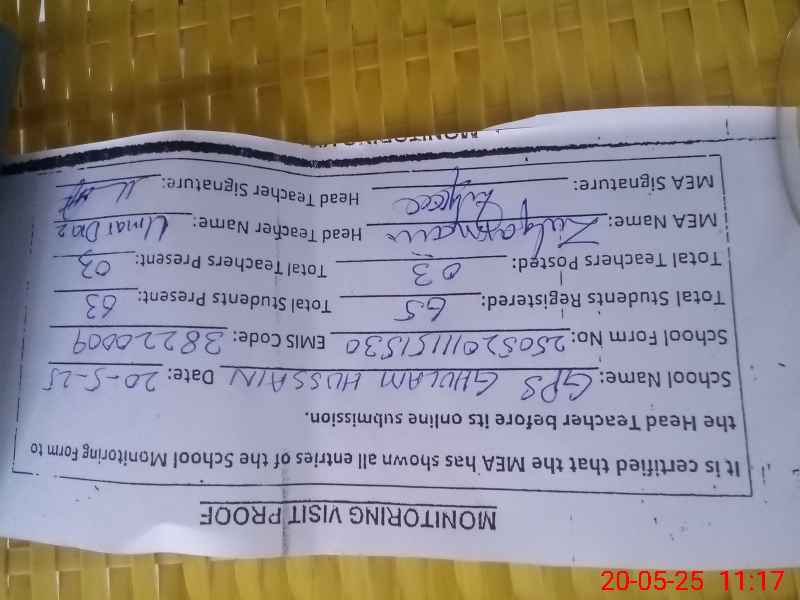 MONITORING VISIT PROOF
It is certified that the MEA has shown all entries of the School Monitoring Form to
the Head Teacher before its online submission.
School Name: GPS GHULAM HUSSAIN Date: 20-5-25
School Form No: 25052011151530 EMIS Code: 38220009
Total Students Registered: 65 Total Students Present: 63
Total Teachers Posted: 03 Total Teachers Present: 03
MEA Name: Head Teacher Name: Umar
MEA Signature: Head Teacher Signature:
20-05-25 11:17